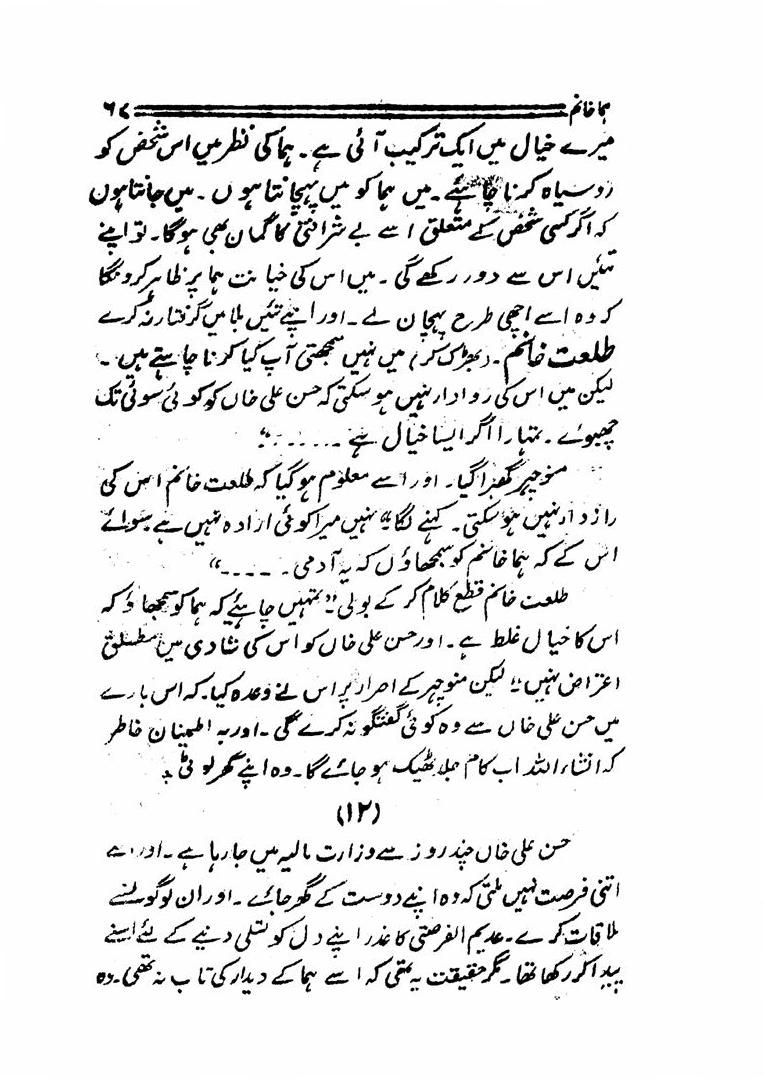 ہما خانم ۶۷
میرے خیال میں ایک ترکیب آئی ہے۔ ہما کی نظر میں اس شخص کو
روسیاہ کرنا چاہئے۔ میں ہما کو میں پہچانتا ہوں۔ میں جانتا ہون
کہ اگر کسی شخص کے متعلق اسے بے شرافتی کا گمان بھی ہوگا۔ تو اپنے
تئیں اس سے دور رکھے گی۔ میں اس کی خیانت ہما پر ظاہر کرونگا
کہ وہ اسے اچھی طرح پہچان لے۔ اور اپنے تئیں بلا میں گرفتار نہ کرے
طلعت خانم۔ (بھڑک کر) میں نہیں سمجھتی آپ کیا کرنا چاہتے ہیں۔
لیکن میں اس کی روادار نہیں ہوسکتی کہ حسن علی خاں کو کوئی سوئی تک
چھبوئے۔ تمہارا اگر ایسا خیال ہے ......"
منوچہر گھبرا گیا۔ اور اسے معلوم ہوگیا کہ طلعت خانم اس کی
رازدار نہیں ہوسکتی۔ کہنے لگا "نہیں میرا کوئی ارادہ نہیں ہے سوائے
اس کے کہ ہما خانم کو سمجھاؤں کہ یہ آدمی۔ ....."
طلعت خانم قطع کلام کر کے بولی "تمہیں چاہئیے کہ ہما کو سمجھاؤ کہ
اس کا خیال غلط ہے۔ اور حسن علی خاں کو اس کی شادی میں مطلق
اعتراض نہیں" لیکن منوچہر کے اصرار پر اس نے وعدہ کیا۔ کہ اس بارے
میں حسن علی خاں سے وہ کوئی گفتگو نہ کرے گی۔ اور بہ اطمینان خاطر
کہ انشاء اللہ اب کام جلد ٹھیک ہو جائے گا۔ وہ اپنے گھر لوٹی ۔
(۱۲)
حسن علی خاں چند روز سے وزارت مالیہ میں جا رہا ہے۔ اور اسے
اتنی فرصت نہیں ملتی کہ وہ اپنے دوست کے گھر جائے۔ اور ان لوگوں سے
ملاقات کرے۔ عدیم الفرصتی کا عذر اپنے دل کو تسلی دنیے کے لئے اسنے
پیدا کر رکھا تھا۔ مگر حقیقت یہ تھی کہ اسے ہما کے دیدار کی تاب نہ تھی۔ وہ